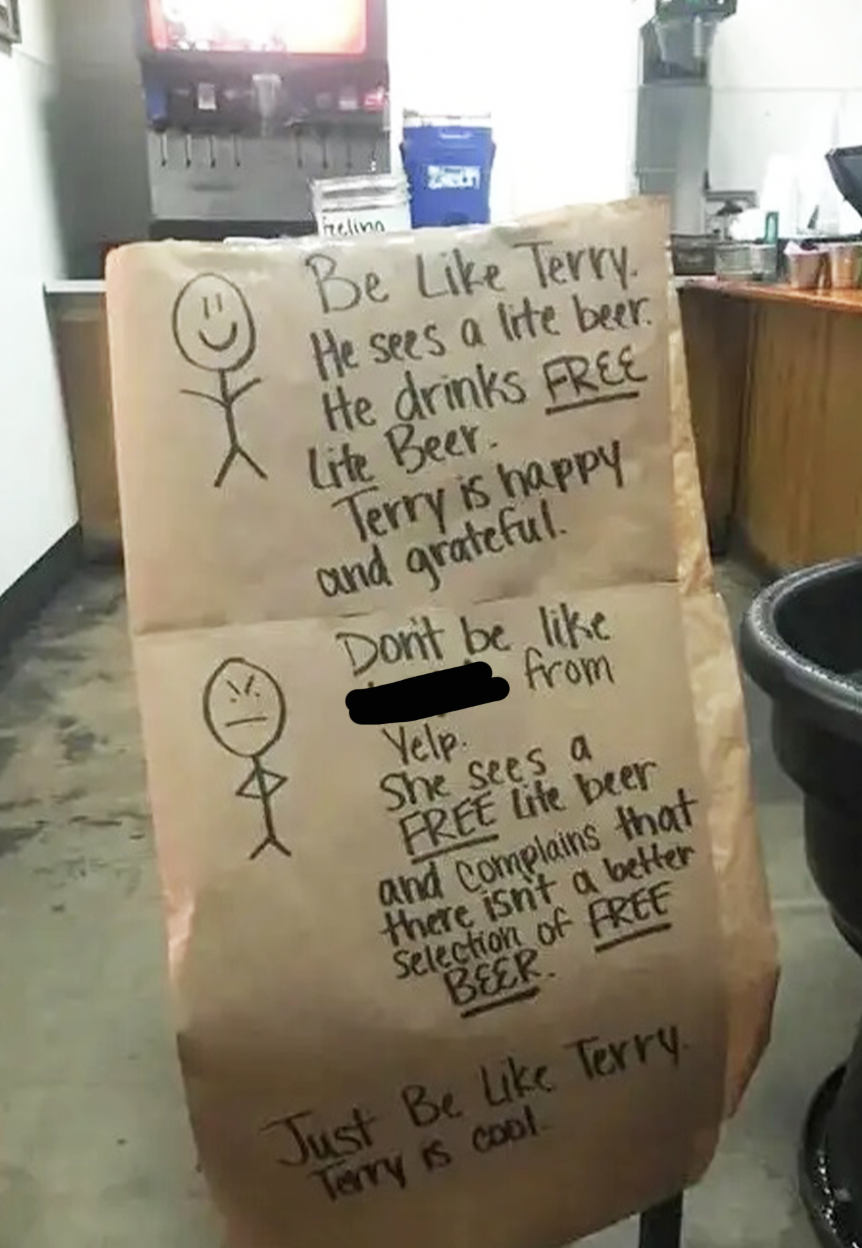 Be Like Terry.
He sees a lite beer.
He drinks FREE
Lite Beer.
Terry is happy
and grateful.
Don't be like
from
Yelp.
She sees a
FREE Lite beer
and complains that
there isn't a better
selection of FREE
BEER.
Just Be Like Terry.
Terry is cool.